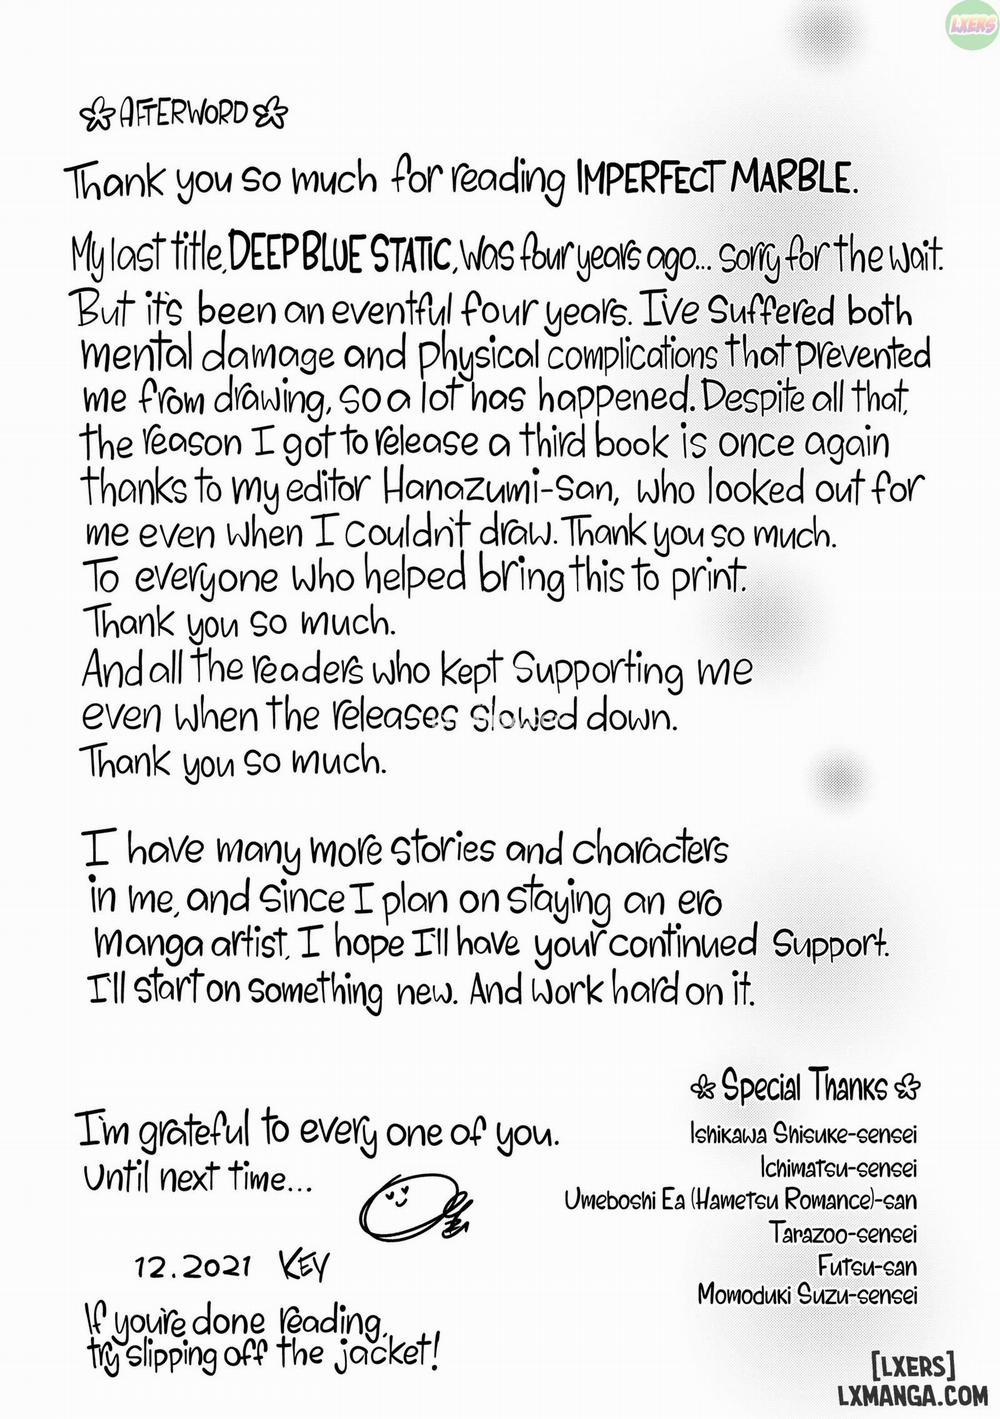 LXERS
AFTERWORD
Thank you so much for reading IMPERFECT MARBLE.
My last title, DEEP BLUE STATIC, was four years ago... Sorry for the wait.
But it's been an eventful four years. I've suffered both
mental damage and physical complications that prevented
me from drawing, so a lot has happened. Despite all that,
the reason I got to release a third book is once again
thanks to my editor Hanazumi-san, who looked out for
me even when I couldn't draw. Thank you so much.
To everyone who helped bring this to print.
Thank you so much.
And all the readers who kept supporting me
even when the releases slowed down.
Thank you so much.
I have many more stories and characters
in me, and since I plan on staying an ero
manga artist, I hope I'll have your continued support.
I'll start on something new. And work hard on it.
I'm grateful to every one of you.
Until next time...
12.2021 KEY
If you're done reading,
try slipping off the jacket!
Special Thanks
Ishikawa Shisuke-sensei
Ichimatsu-sensei
Umeboshi Ea (Hametsu Romance)-san
Tarazoo-sensei
Futsu-san
Momoduki Suzu-sensei
[LXERS]
LXMANGA.COM